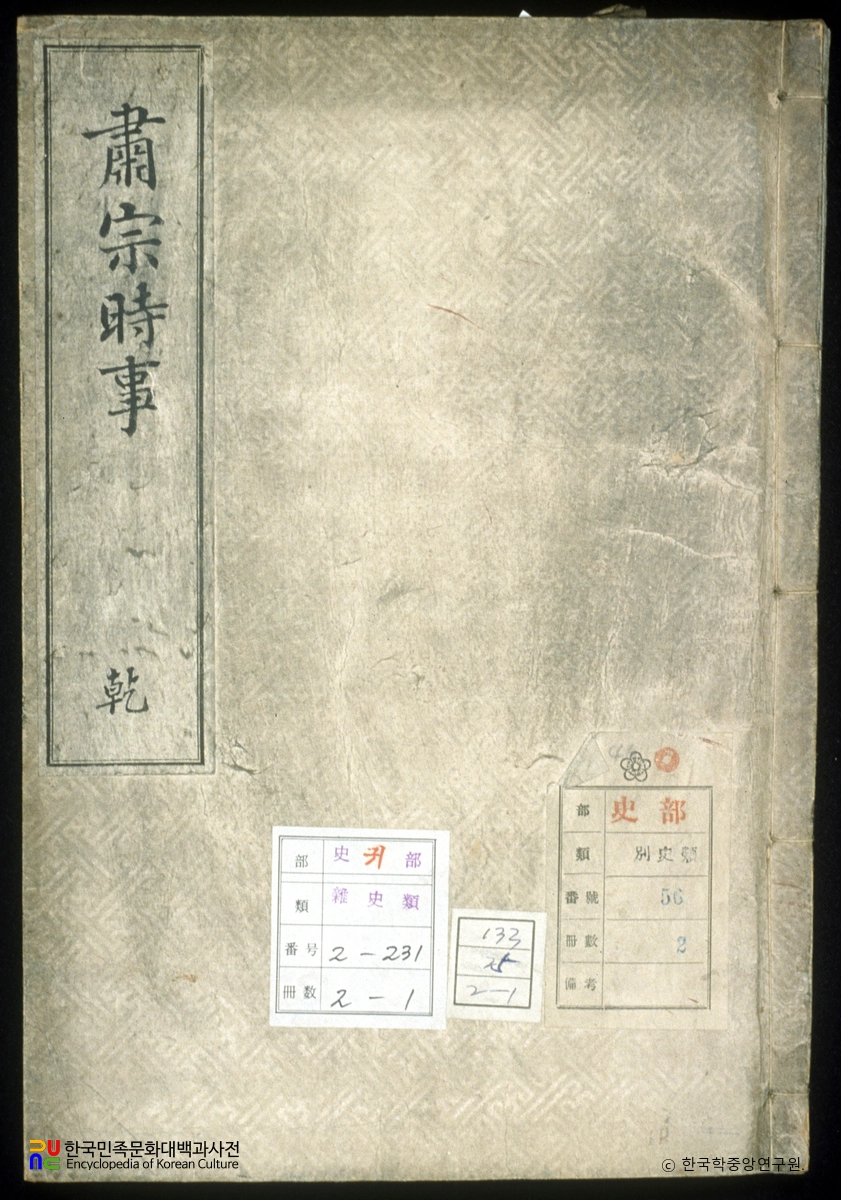 肅宗時事
乾
部 史 귀 部
類 雜 史 類
番号 2-231
冊数 2-1
133
25
2-1
部 史部
類 別史類
番號 56
冊數 2
備考
한국민족문화대백과사전
Encyclopedia of Korean Culture
© 한국학중앙연구원